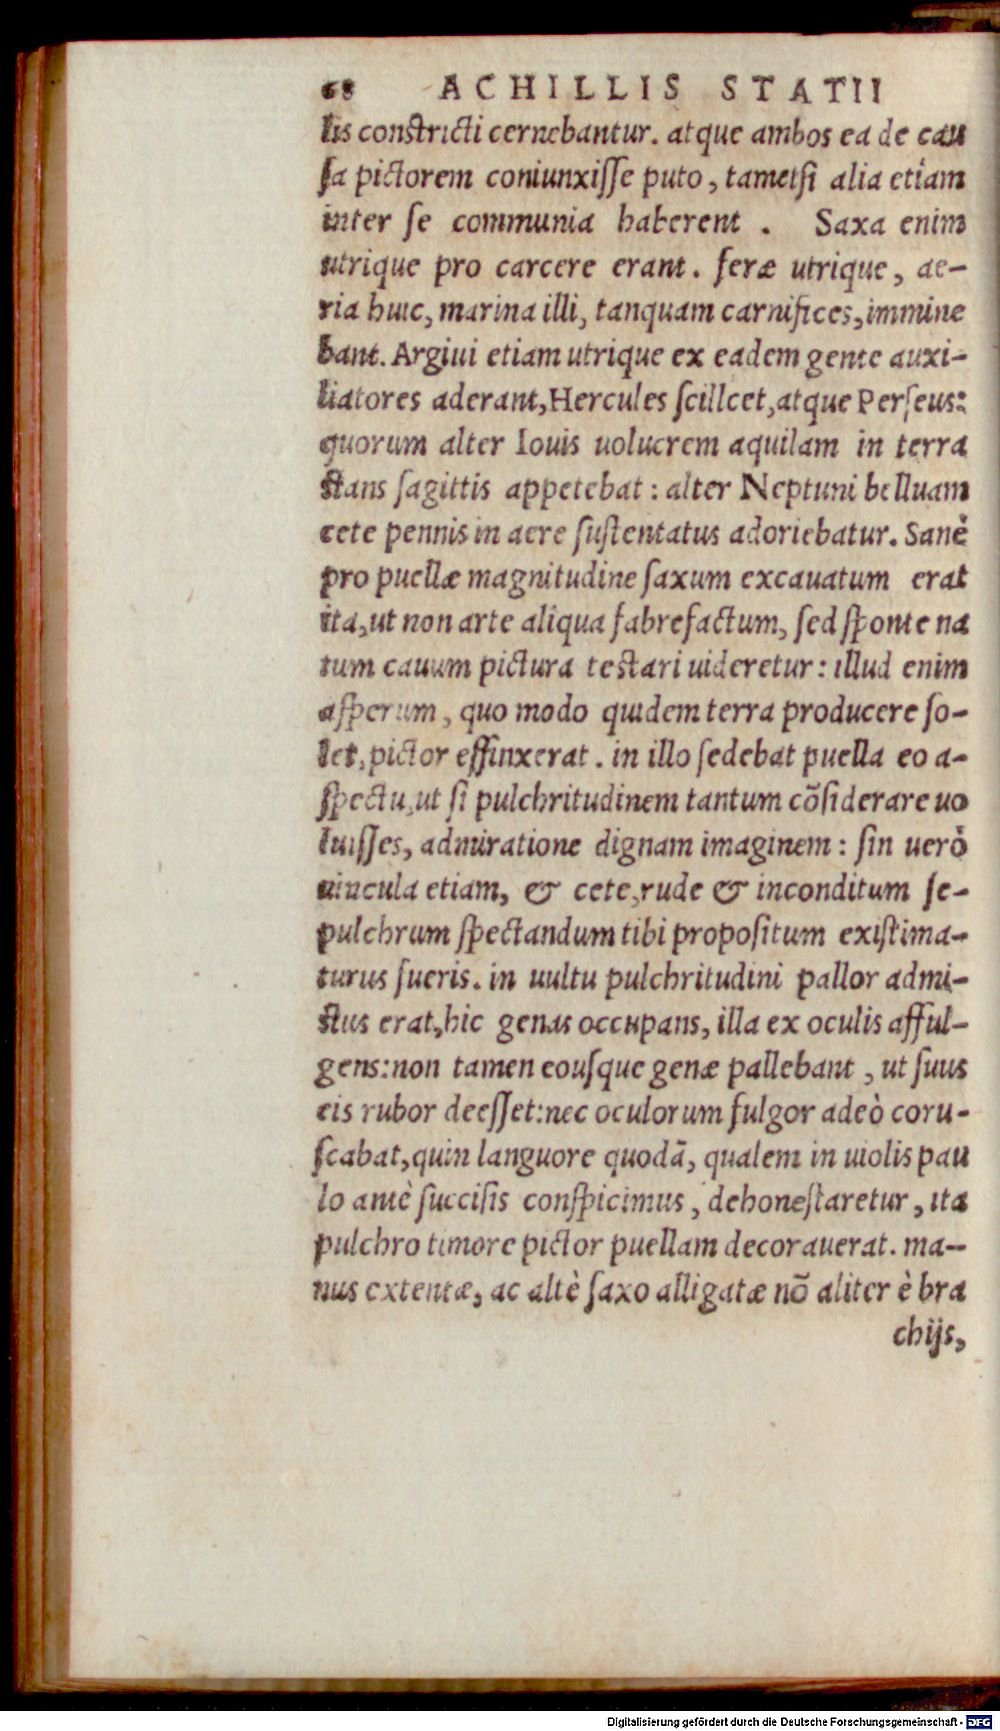 68 ACHILLIS STATII
lis constricti cernebantur. atque ambos ea de cau
sa pictorem coniunxisse puto, tametsi alia etiam
inter se communia haberent . Saxa enim
utrique pro carcere erant. feræ utrique, ae-
ria huic, marina illi, tanquam carnifices, immine
bant. Argiui etiam utrique ex eadem gente auxi-
liatores aderant, Hercules scillcet, atque Perseus:
quorum alter Iouis uolucrem aquilam in terra
stans sagittis appetebat: alter Neptuni belluam
cete pennis in aere sustentatus adoriebatur. Sanè
pro puellæ magnitudine saxum excauatum erat
ita, ut non arte aliqua fabrefactum, sed sponte na
tum cauum pictura testari uideretur: illud enim
asperum, quo modo quidem terra producere so-
let, pictor effinxerat. in illo sedebat puella eo a-
spectu, ut si pulchritudinem tantum cõsiderare uo
luisses, admiratione dignam imaginem: sin uerò
uincula etiam, & cete, rude & inconditum se-
pulchrum spectandum tibi propositum existima-
turus fueris. in uultu pulchritudini pallor admi-
stus erat, hic genas occupans, illa ex oculis afful-
gens: non tamen eousque genæ pallebant, ut suus
eis rubor deesset: nec oculorum fulgor adeò coru-
scabat, quin languore quodã, qualem in uiolis pau
lo antè succisis conspicimus, dehonestaretur, ita
pulchro timore pictor puellam decorauerat. ma-
nus extentæ, ac altè saxo alligatæ nõ aliter è bra
chijs,
Digitalisierung gefördert durch die Deutsche Forschungsgemeinschaft - DFG